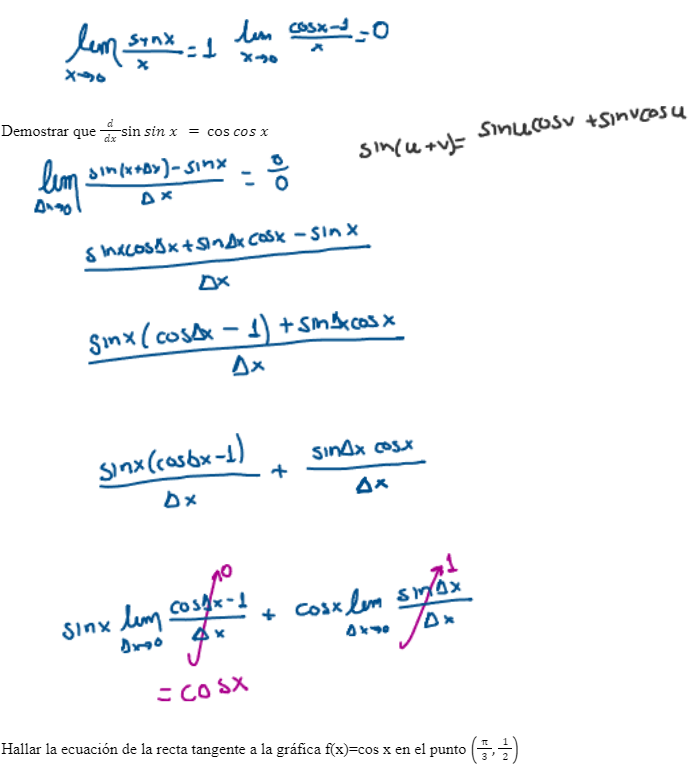 lim x→0 sin x / x = 1   lim x→0 cosx-1 / x = 0
Demostrar que d/dx sin sin x = cos cos x
sin(u+v)= sinu cosv + sinv cosu
lim Δx→0 sin(x+Δx) - sinx / Δx = 0/0
sinxcosΔx + sinΔx cosx - sinx / Δx
sinx(cosΔx - 1) + sinΔxcosx / Δx
sinx(cosΔx-1) / Δx + sinΔx cosx / Δx
0 1
sinx lim Δx→0 cosΔx-1 / Δx + cosx lim Δx→0 sinΔx / Δx
= cosx
Hallar la ecuación de la recta tangente a la gráfica f(x)=cos x en el punto (π/3, 1/2)